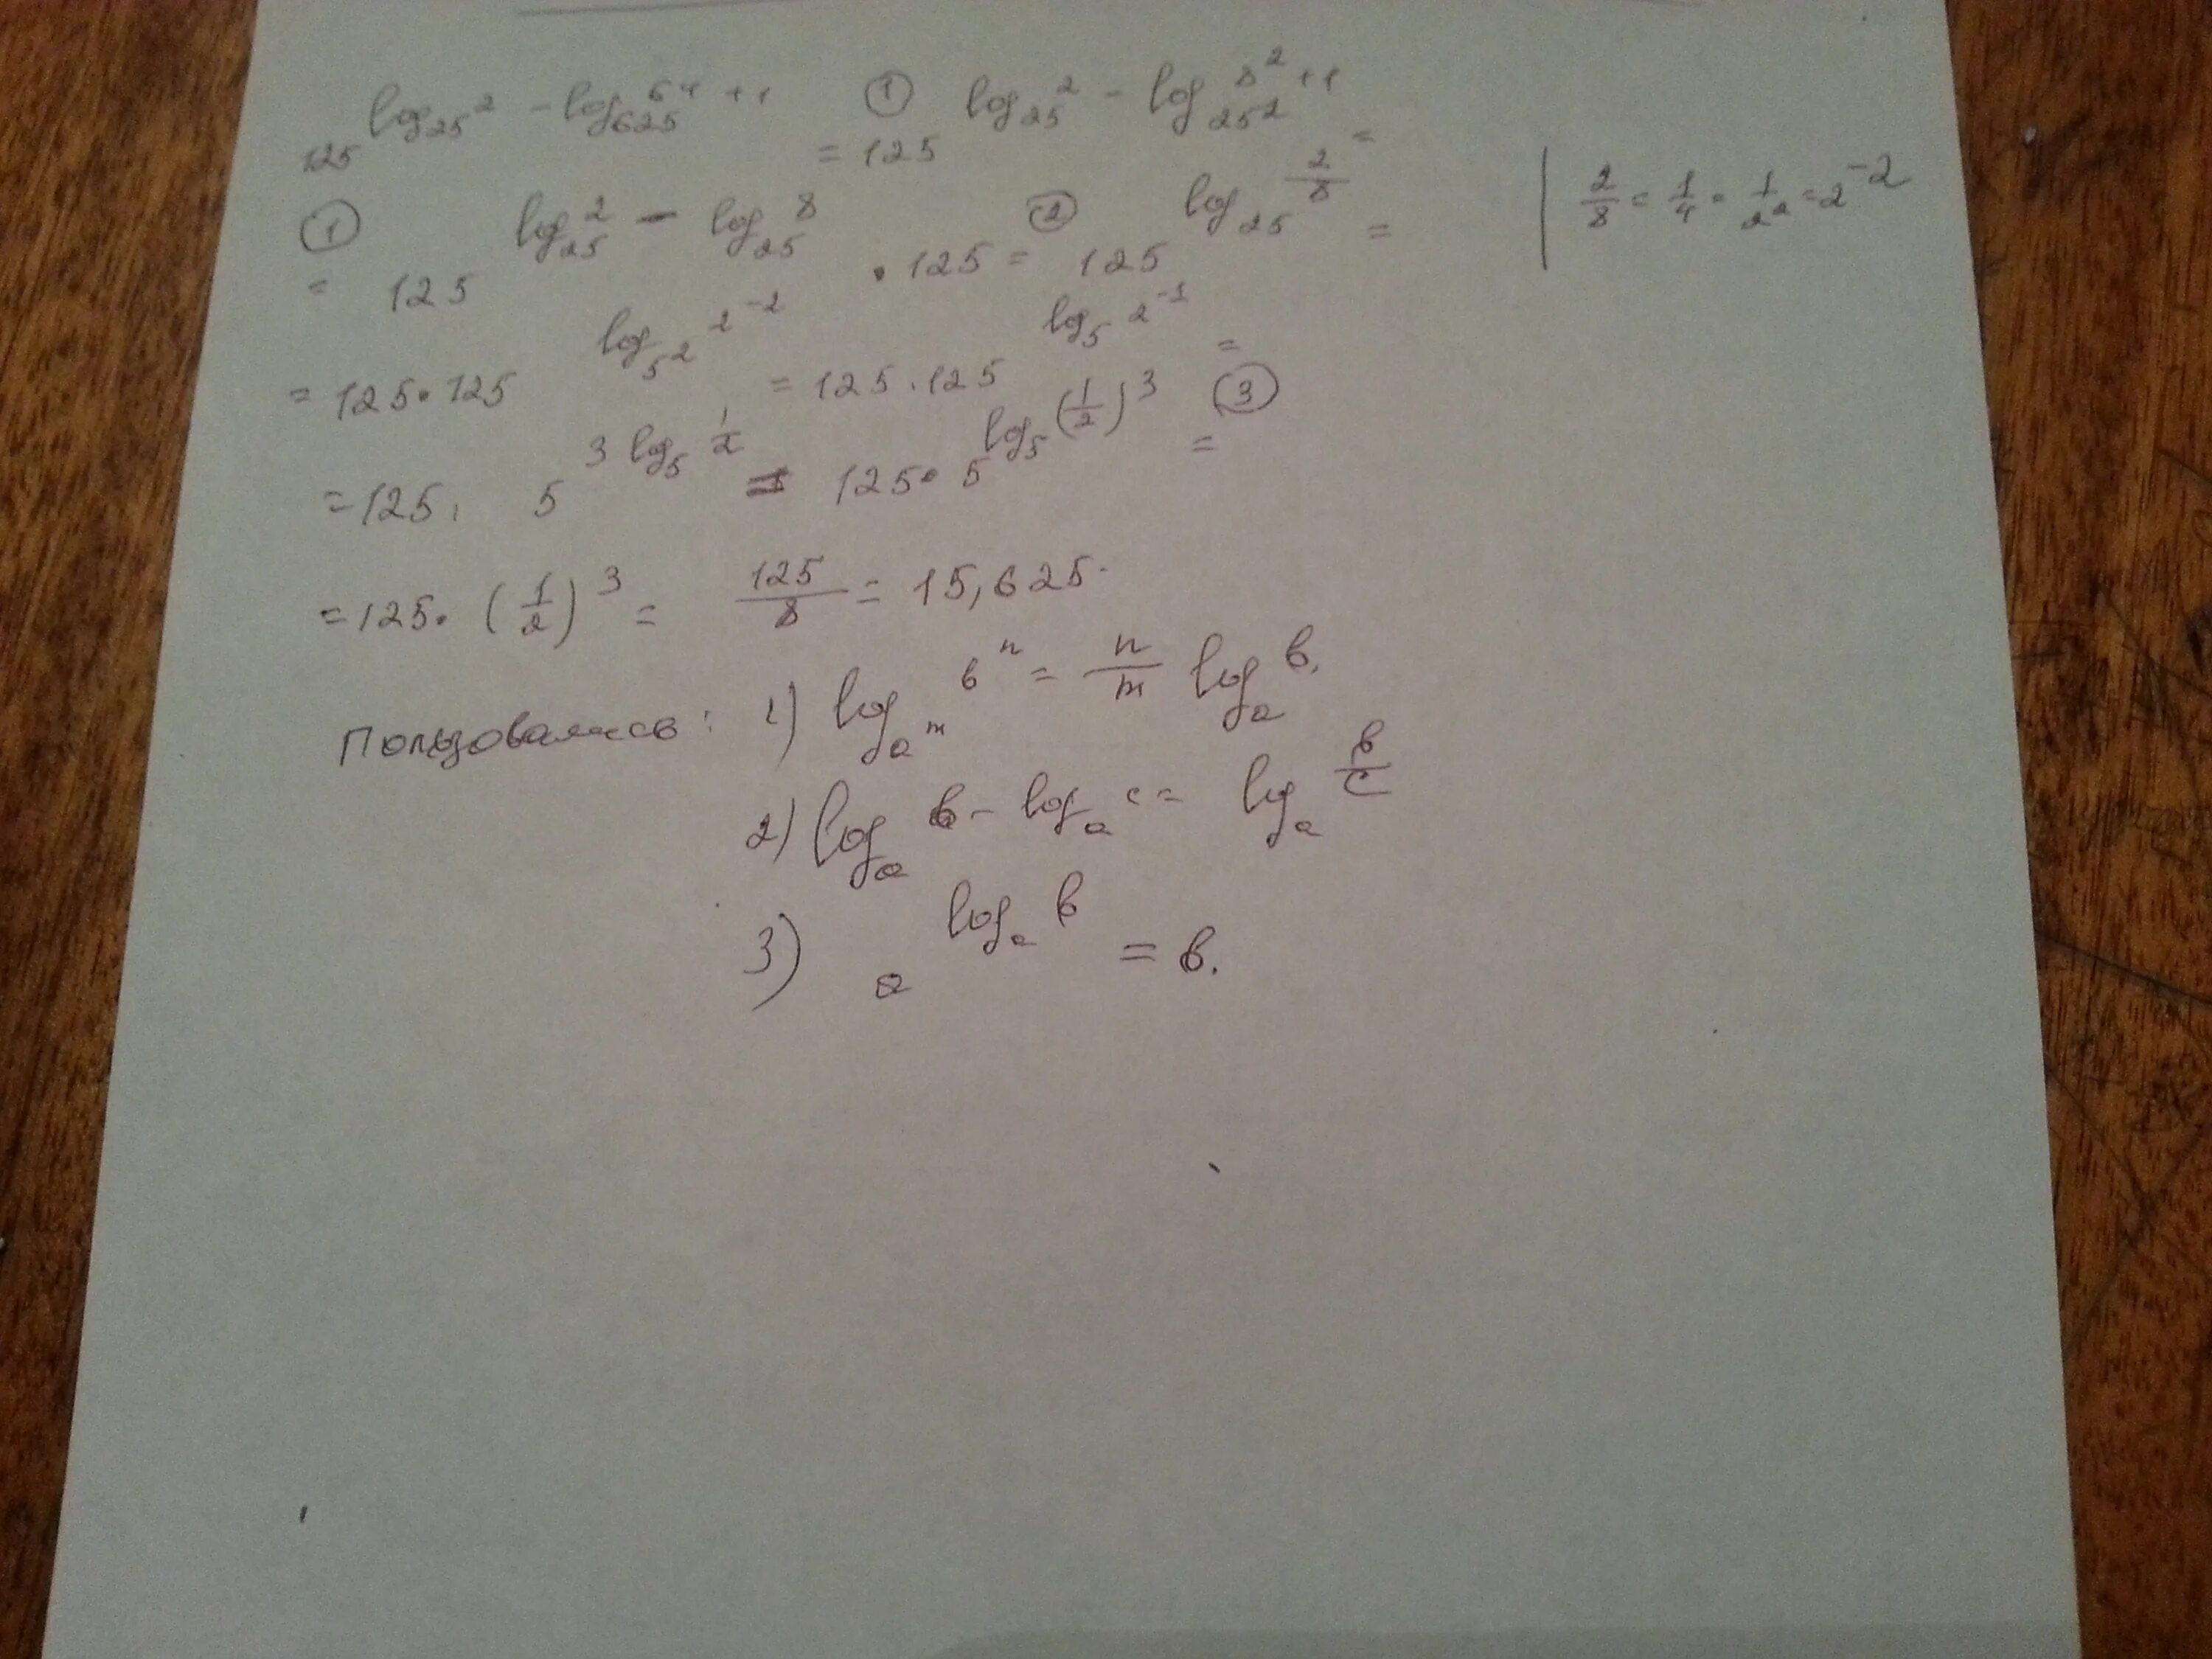 125^{log_{25} 2 - log_{625} 64 + 1} ①= 125^{log_{25} 2 - log_{25^2} 8^2 + 1} =
①= 125^{log_{25} 2 - log_{25} 8} · 125 ②= 125^{log_{25} \frac{2}{8}} = | \frac{2}{8} = \frac{1}{4} = \frac{1}{2^2} = 2^{-2}
= 125 · 125^{log_{5^2} 2^{-2}} = 125 · 125^{log_5 2^{-1}} =
= 125 · 5^{3 log_5 \frac{1}{2}} = 125 · 5^{log_5 (\frac{1}{2})^3} ③=
= 125 · (\frac{1}{2})^3 = \frac{125}{8} = 15,625.
Пользовались: 1) log_{a^m} в^n = \frac{n}{m} log_a в.
2) log_a в - log_a c = log_a \frac{в}{c}
3) a^{log_a в} = в.